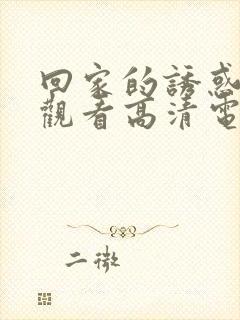 回家的誘惑
觀看高清電
二微